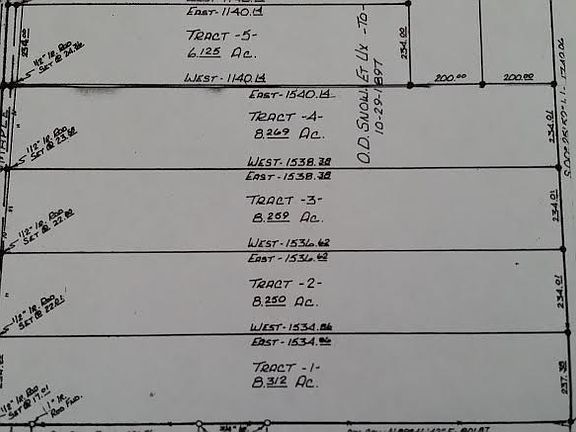 EAST-1140.14
TRACT -5-
6.125 AC.
WEST-1140.14
234.02
200.00
200.00
EAST-1540.14
TRACT -4-
8.269 AC.
WEST-1538.38
O.D. SNOW, ET UX -TO-
10-29-1897
234.01
EAST-1538.38
TRACT -3-
8.259 AC.
WEST-1536.62
234.01
EAST-1536.62
TRACT -2-
8.250 AC.
WEST-1534.86
234.01
EAST-1534.86
TRACT -1-
8.312 AC.
237.38
1/2" IR. ROD
SET @
1/2" IR. ROD
SET @
1/2" IR. ROD
SET @
1/2" IR. ROD
SET @ 22.01
1/2" IR. ROD
SET @ 17.01
1" IR.
ROD FND.